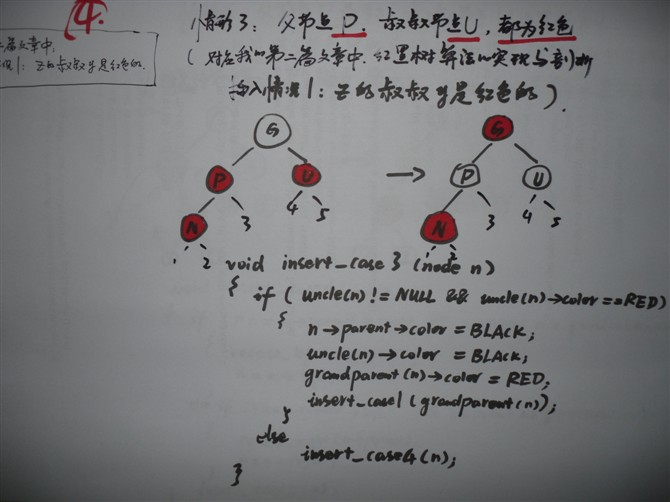 4.
情形3: 父节点P、叔叔节点U, 都为红色
二篇文章中,
(对应我的第二篇文章中, 红黑树算法的实现与剖析
情况1: z的叔叔y是红色的.
插入情况1: z的叔叔y是红色的).
G G
P U → P U
3 4 5 3 4 5
N N
1 2 1 2
void insert_case3 (node n)
{ if ( uncle(n) != NULL && uncle(n)->color == RED)
{
n->parent->color = BLACK;
uncle(n)->color = BLACK;
grandparent(n)->color = RED;
insert_case1(grandparent(n));
}
else
insert_case4(n);
}